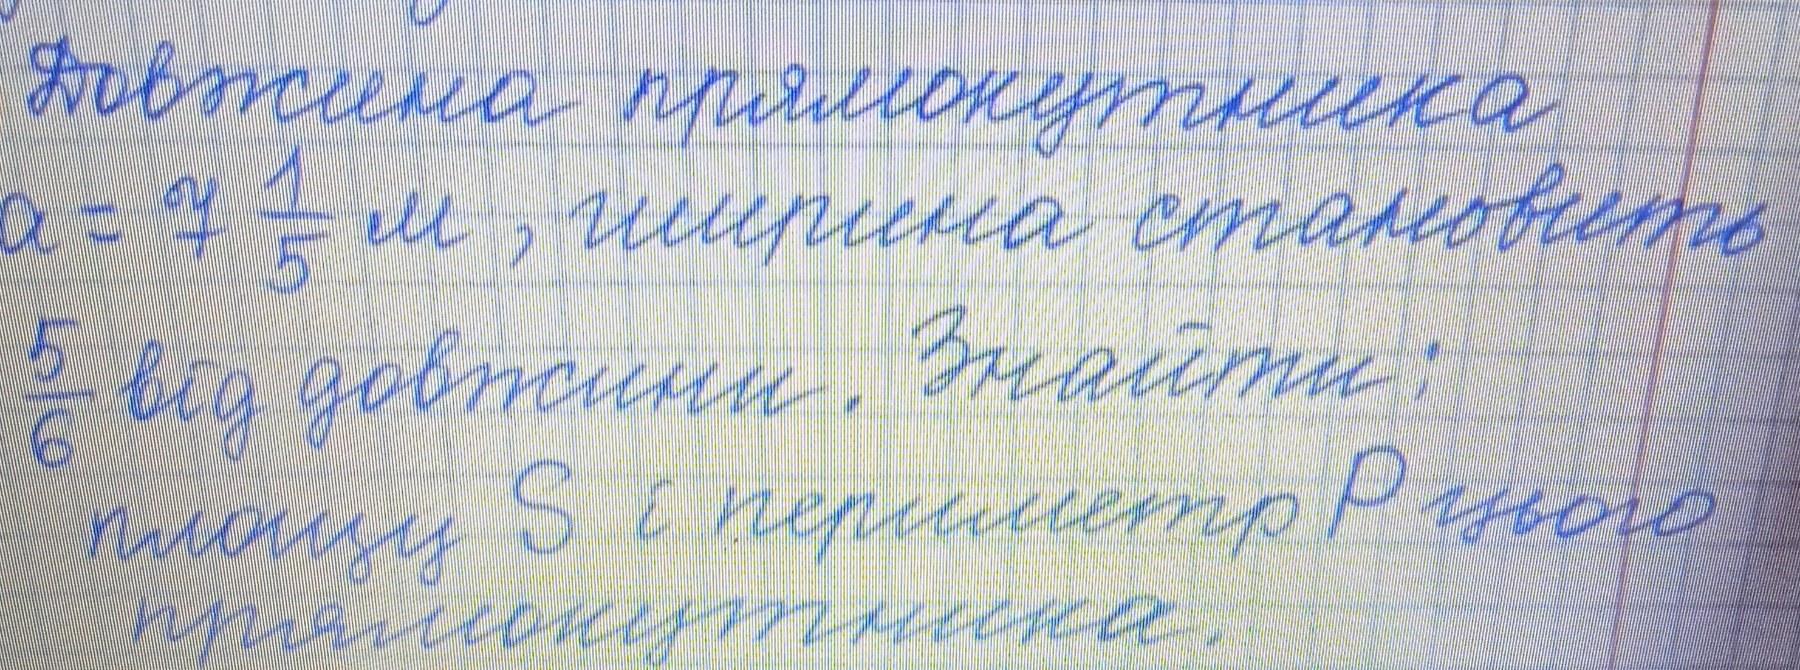 Довжина прямокутника
a = 7 1/5 м, ширина становить
5/6 від довжини. Знайти:
площу S і периметр P цього
прямокутника.